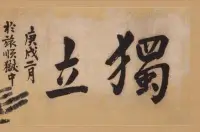 獨立
庚戌二月
於旅順獄中